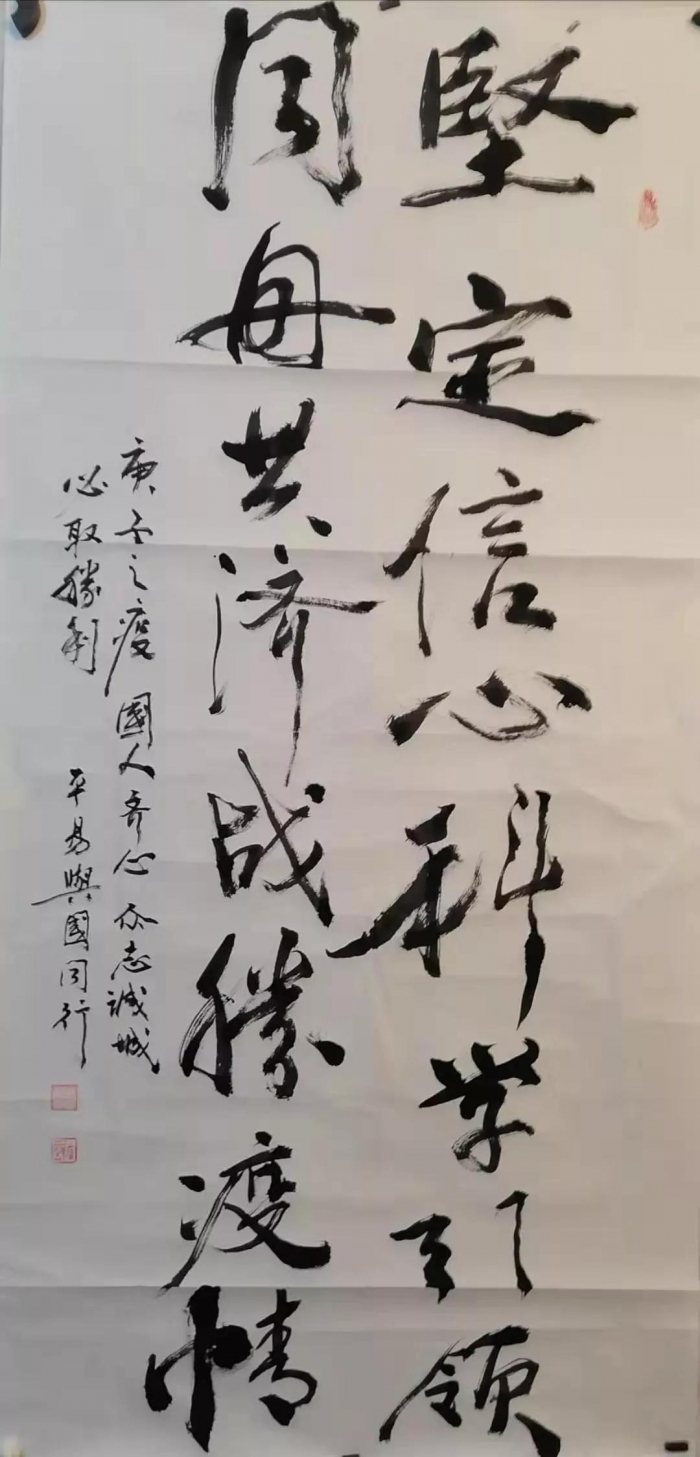 堅定信心科学引领
同舟共济战勝疫情
庚子之疫 國人齐心 众志诚城
必取勝利 平易與國同行